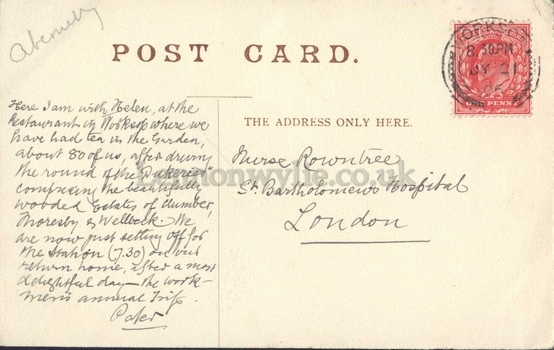 Abernethy
POST CARD.
WORKSOP
8.30PM
JY 21
05
ONE PENNY
Here I am with Helen, at the
Restaurant in Worksop where we
have had tea in the Garden,
about 80 of us, after driving
the round of the Dukeries
comprising the beautifully
wooded Estates of Clumber,
Thoresby & Welbeck. We
are now just setting off for
the Station (7.30) on our
return home, after a most
delightful day — the work-
men's annual Trip.
Pater
THE ADDRESS ONLY HERE.
Nurse Rowntree
St. Bartholomew's Hospital
London
lennonwylie.co.uk